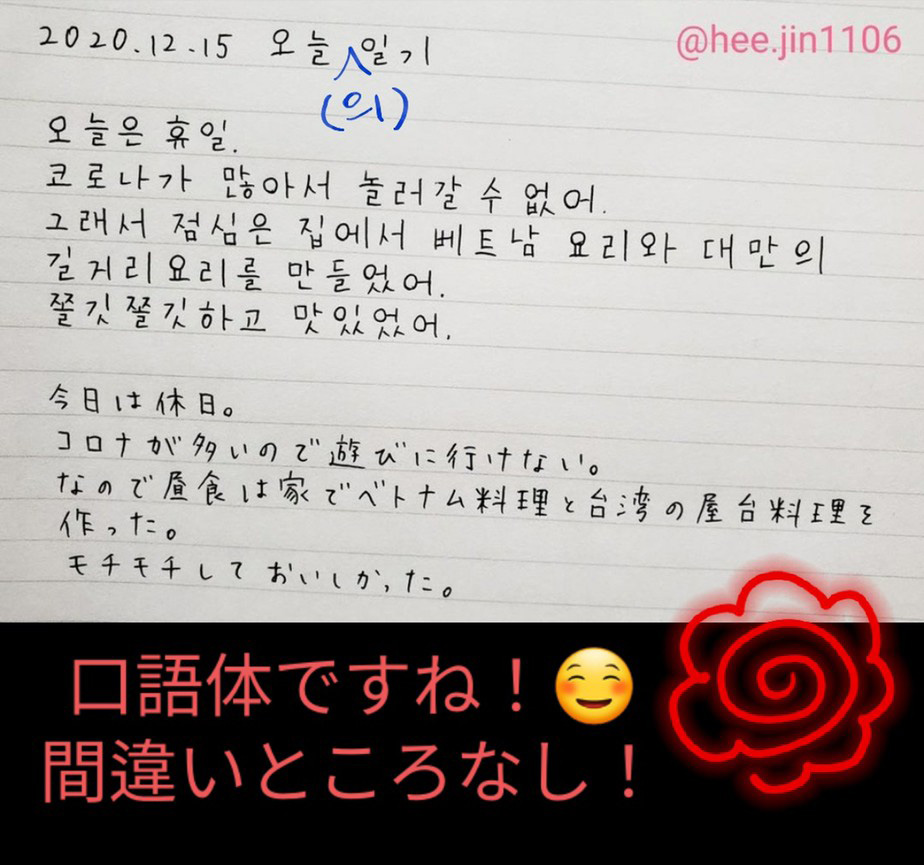 2020.12.15 오늘 일기
@hee.jin1106
(의)
오늘은 휴일.
코로나가 많아서 놀러갈 수 없어.
그래서 점심은 집에서 베트남 요리와 대만의
길거리요리를 만들었어.
쫄깃쫄깃하고 맛있었어.
今日は休日。
コロナが多いので遊びに行けない。
なので昼食は家でベトナム料理と台湾の屋台料理を
作った。
モチモチしておいしかった。
口語体ですね！😊
間違いところなし！